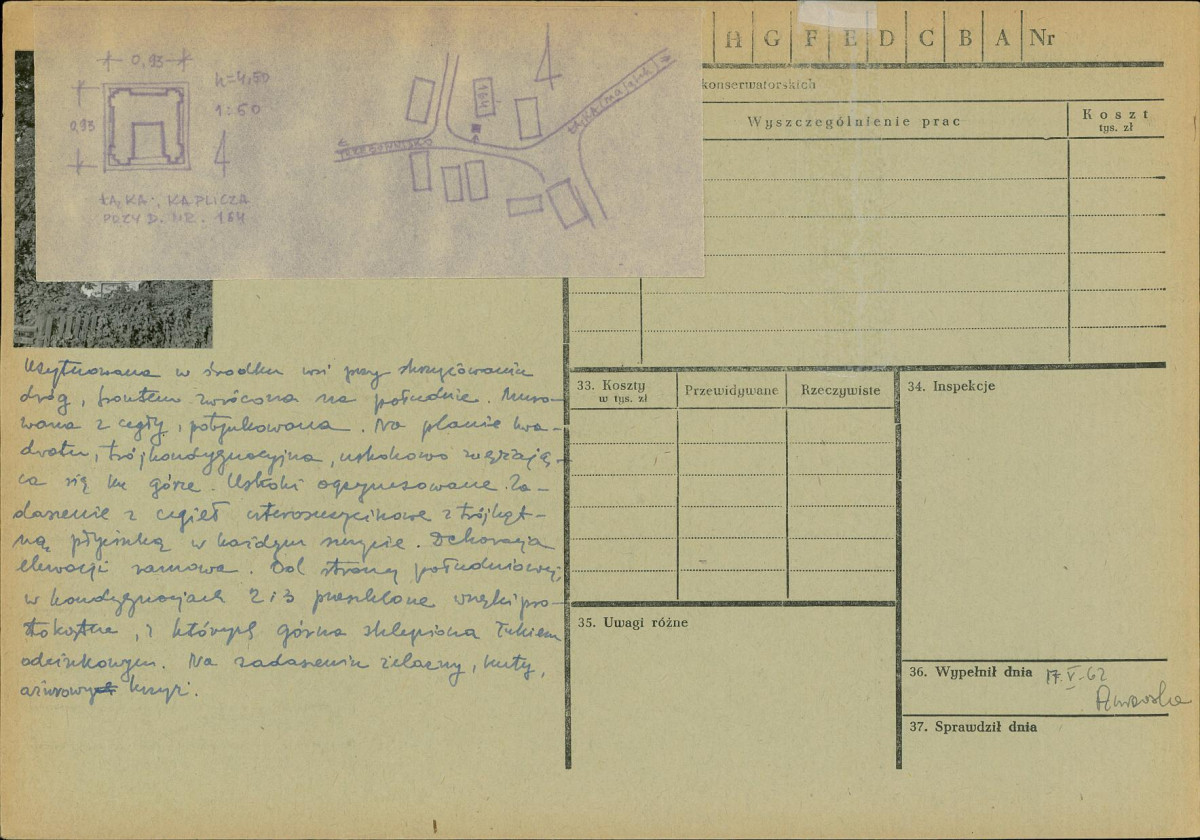 0,93
h=4,50
0,93
1:60
ŁĄKA, KAPLICZA
PRZY D. NR. 164
164
TRZEBOWNISKO
H G F E D C B A Nr
konserwatorskich
Wyszczególnienie prac
Koszt
tys. zł
Usytuowana w środku wsi przy skrzyżowaniu
dróg, frontem zwrócona na południe. Muro-
wana z cegły, potynkowana. Na planie kwa-
dratu, trójkondygnacyjna, uskokowo zwężają-
ca się ku górze. Uskoki ogzymsowane. Za-
daszenie z cegieł czteroszczytowe z trójkąt-
ną płyciną w każdym szczycie. Dekoracja
elewacji ramowa. Od strony południowej,
w kondygnacjach 2 i 3 przeszklone wnęki pro-
stokątne, z których górna sklepiona łukiem
odcinkowym. Na zadaszeniu żelazny, kuty,
ażurowy krzyż.
33. Koszty
w tys. zł
Przewidywane
Rzeczywiste
34. Inspekcje
35. Uwagi różne
36. Wypełnił dnia 17.V.62
37. Sprawdził dnia